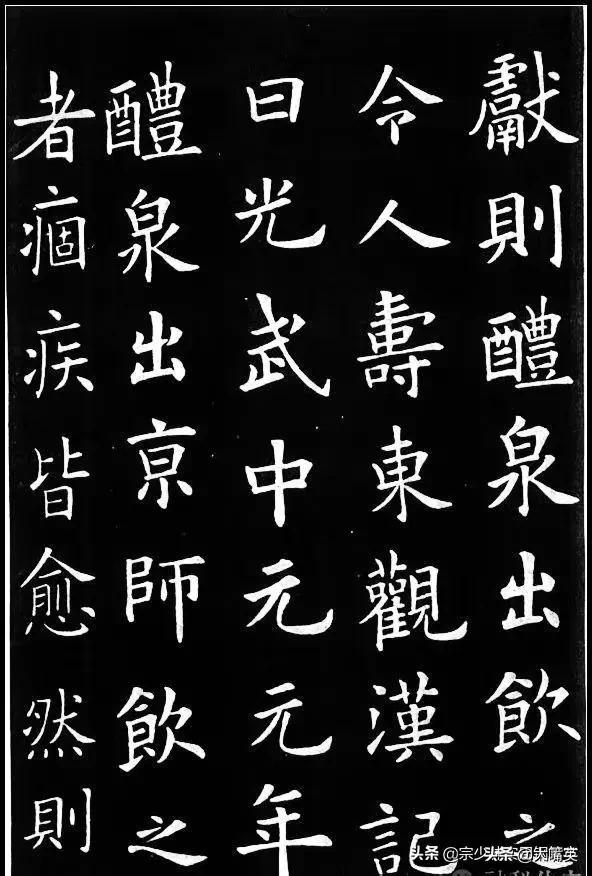 獻則醴泉出飲之
令人壽東觀漢記
曰光武中元元年
醴泉出亰師飲之
者痼疾皆愈然則
头条 @宗少
头条